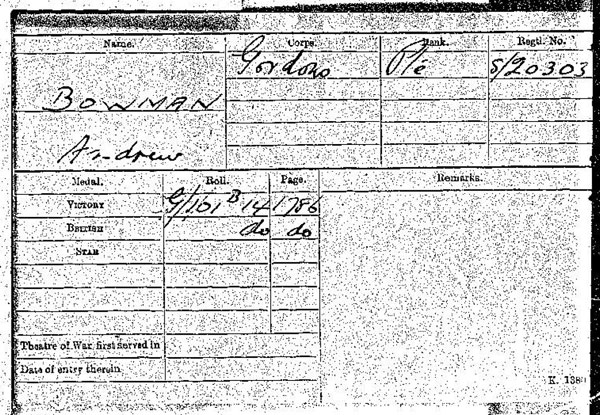 Name. Corps. Rank. Regtl. No.
Gordons Pte S/20303
BOWMAN
Andrew
Medal. Roll. Page. Remarks.
VICTORY G/101 B 14 1786
BRITISH do do
STAR
Theatre of War first served in
Date of entry therein
K. 1380